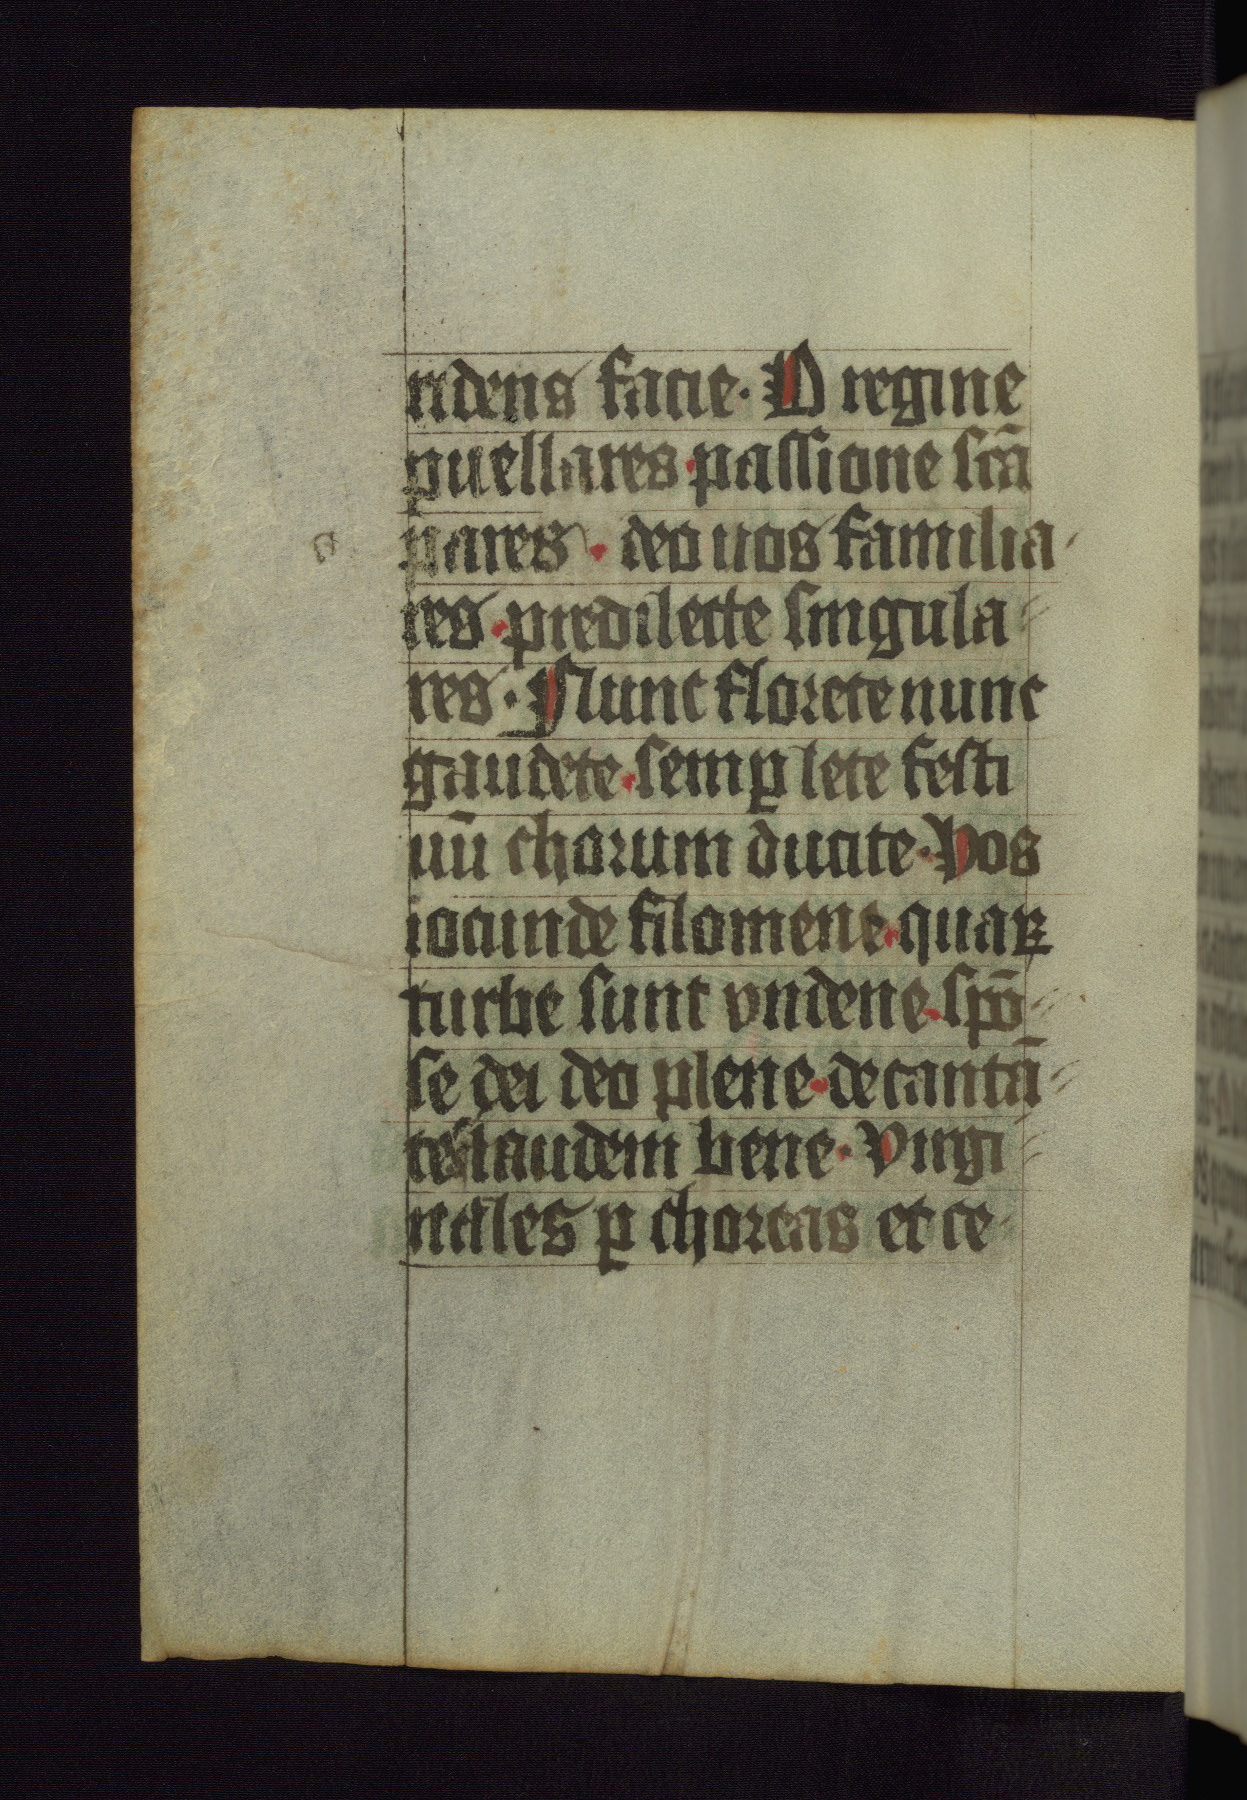 ridens facie. O regine
puellares passione scā
pares. deo uos familia
res. predilecte singula
res. Nunc florete nunc
gaudete. semꝑ lete festi
uū chorum ducite. Vos
iocunde filomene. quaꝝ
turbe sunt vndene. spō
se dei deo plene. decantā
tes laudem bene. Virgi
nales ꝑ choreas et ce